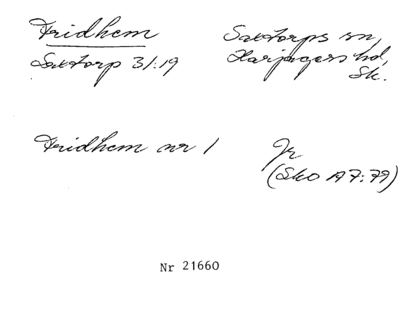 Fridhem
Saxtorps sn,
Saxtorp 31:19
Harjagers hd,
Sk.
Fridhem nr 1
Jr
(Sko A7:79)
Nr 21660